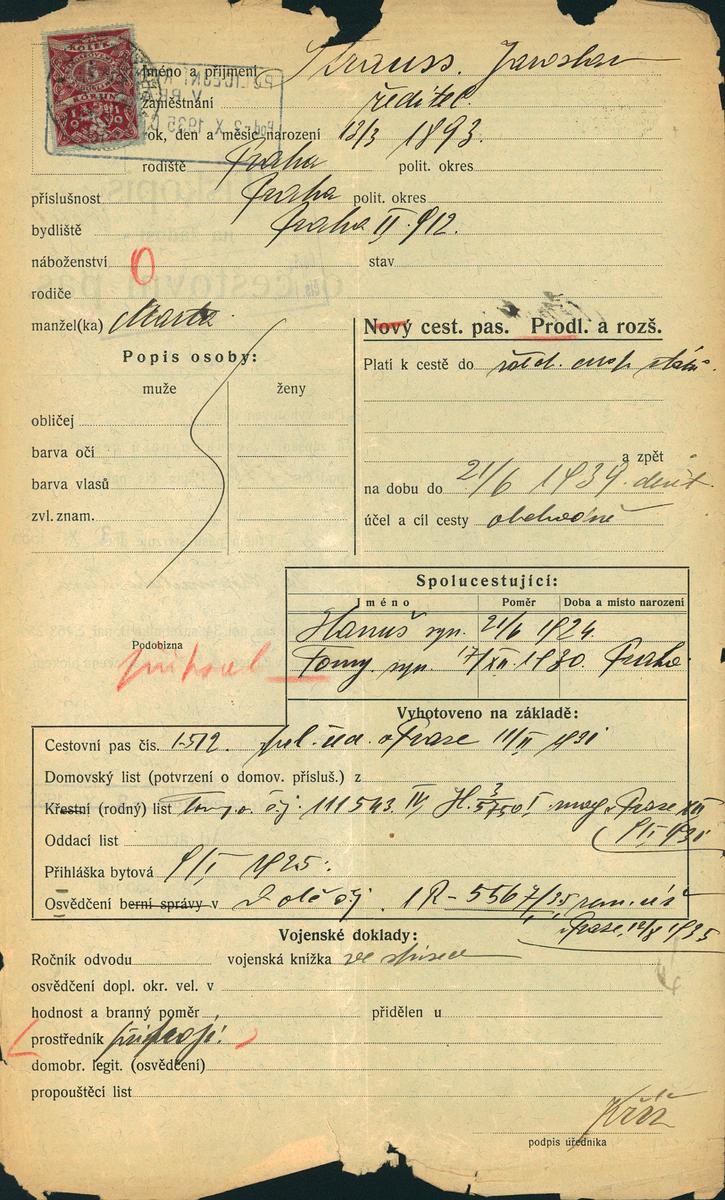 KOLEK
5
1919
Jméno a příjmení Strauss Jaroslav
zaměstnání ředitel
rok, den a měsíc narození 13/3 1893.
rodiště Praha polit. okres
příslušnost Praha polit. okres
bydliště Praha II 912.
náboženství O stav
rodiče
manžel(ka) Marta
Nový cest. pas. Prodl. a rozš.
Popis osoby:
muže ženy
obličej
barva očí
barva vlasů
zvl. znam.
Platí k cestě do států.
a zpět
na dobu do 21/6 1939.
účel a cíl cesty obchodně
Spolucestující:
Jméno Poměr Doba a místo narození
Hanuš syn. 21/6 1924.
Tomy syn 17/XII. 1930. Praha.
Podobizna
Vyhotoveno na základě:
Cestovní pas čís. 1512. pol. řed. v Praze 11/II 1931
Domovský list (potvrzení o domov. přísluš.) z
Křestní (rodný) list Tomy čj. 111543. IV, H. 3/5750 I. mag. Praze XII
9/I 1931
Oddací list
Přihláška bytová 9/I 1925.
Osvědčení berní správy v čj. 1R-5567/35
Praze, 1935
Vojenské doklady:
Ročník odvodu vojenská knížka ve spisech
osvědčení dopl. okr. vel. v
hodnost a branný poměr přidělen u
prostředník připojí!
domobr. legit. (osvědčení)
propouštěcí list
Kříž
podpis úředníka